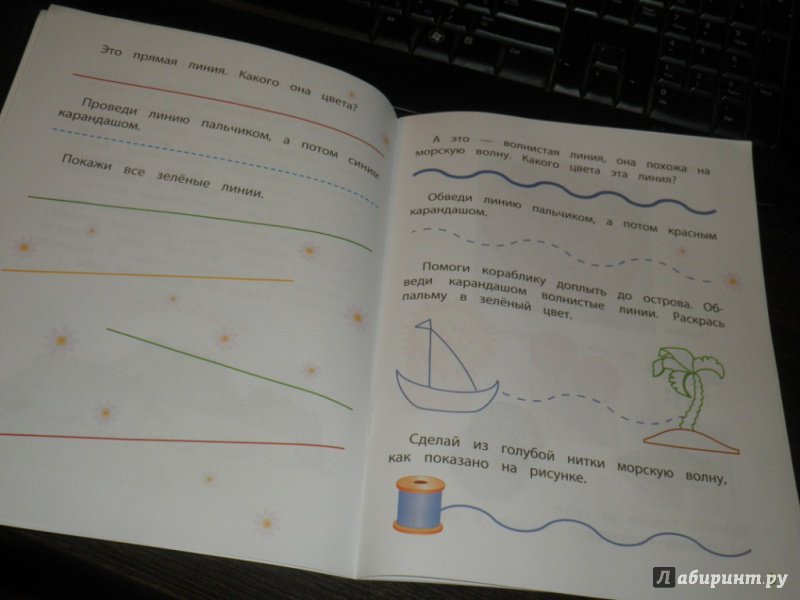 Это прямая линия. Какого она цвета?
Проведи линию пальчиком, а потом синим
карандашом.
Покажи все зелёные линии.
А это — волнистая линия, она похожа на
морскую волну. Какого цвета эта линия?
Обведи линию пальчиком, а потом красным
карандашом.
Помоги кораблику доплыть до острова. Об-
веди карандашом волнистые линии. Раскрась
пальму в зелёный цвет.
Сделай из голубой нитки морскую волну,
как показано на рисунке.
Лабиринт.ру